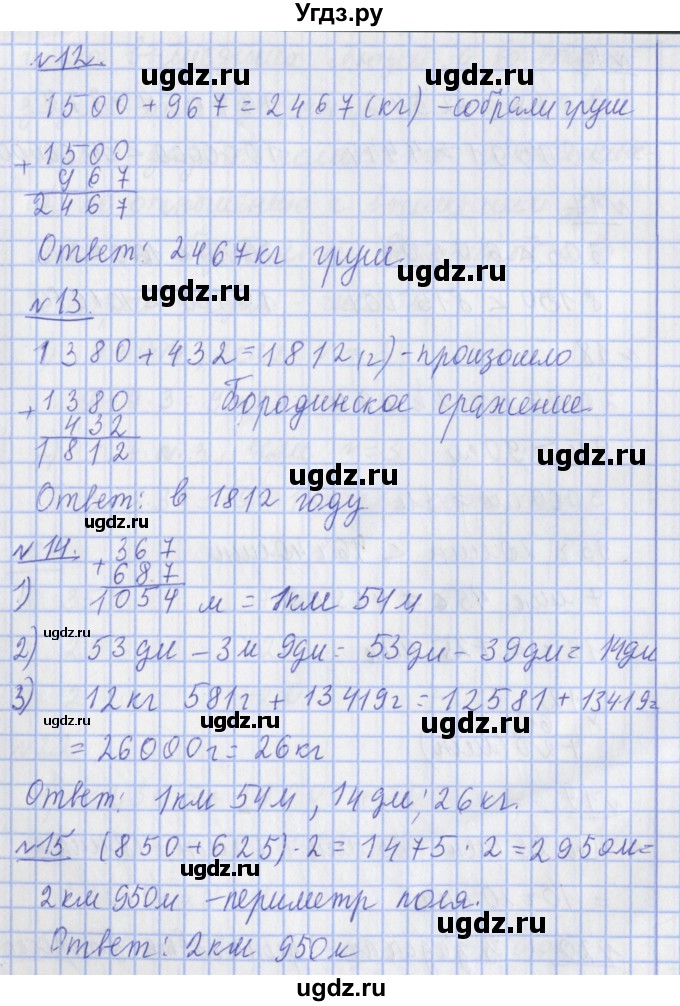 Угдз.ру
№12.
ugdz.ru ugdz.ru
1500 + 967 = 2467 (кг) – собрали груш
+ 1500
967
2467
Ответ: 2467кг груш.
ugdz.ru
ugdz.ru
№13.
1380 + 432 = 1812 (г) – произошло
Бородинское сражение
+ 1380
432
1812
ugdz.ru
ugdz.ru
Ответ: в 1812 году
ugdz.ru
№14.
+ 367
687
1) 1054 м = 1км 54м
ugdz.ru
2) 53дм – 3м 9дм = 53дм – 39дм = 14дм
3) 12кг 581г + 13419г = 12581 + 13419г
ugdz.ru ugdz.ru ugdz.ru
= 26000г = 26кг
Ответ: 1км 54м, 14дм; 26кг.
№15 (850 + 625) · 2 = 1475 · 2 = 2950м =
ugdz.ru
2км 950м – периметр поля.
ugdz.ru
Ответ: 2км 950м
ugdz.ru
ugdz.ru